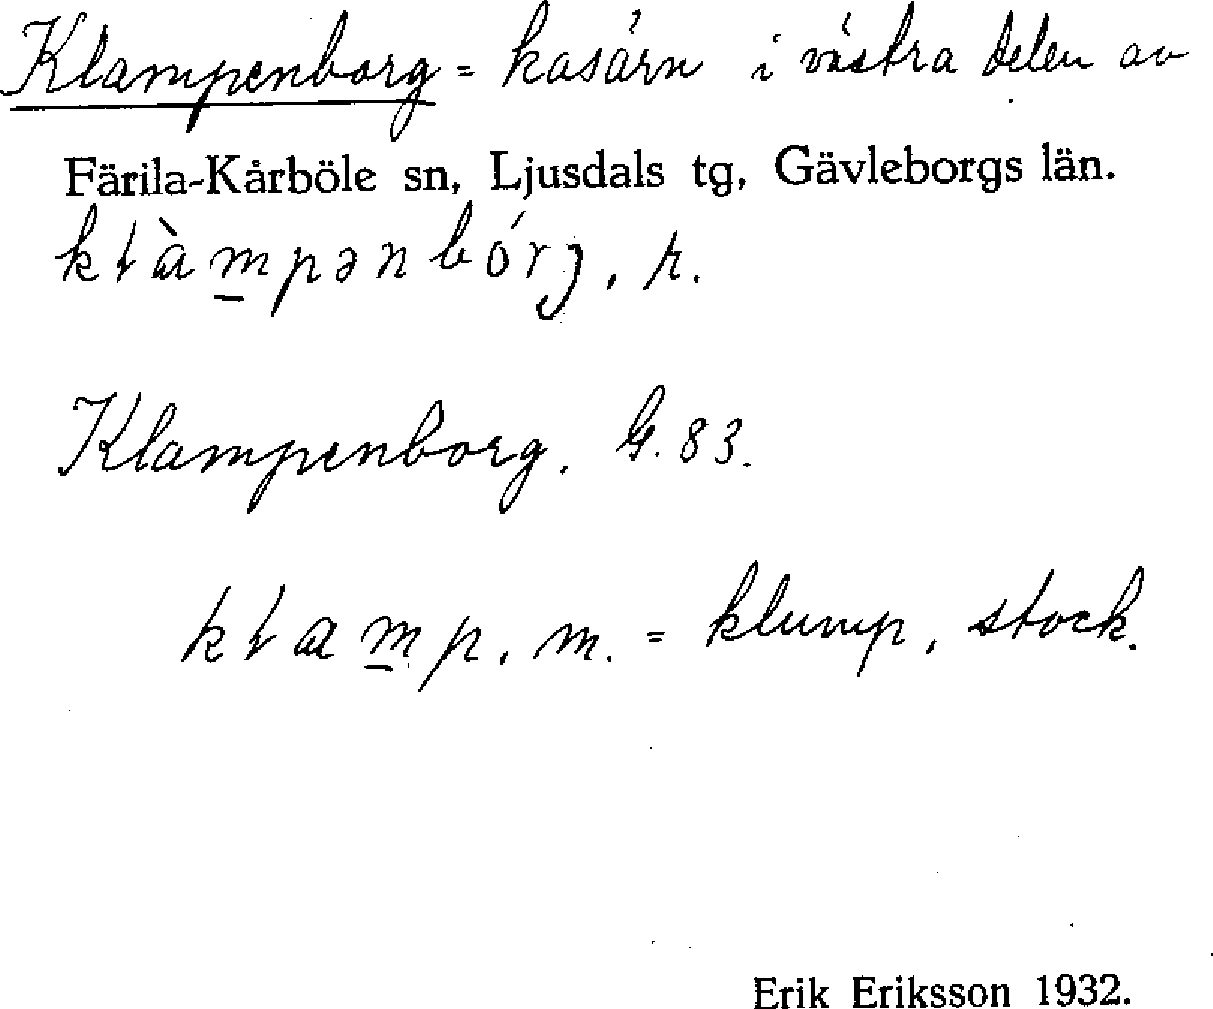 Klampenborg = kasärn i västra delen av
Färila-Kårböle sn, Ljusdals tg, Gävleborgs län.
kɫàm̲pənbórj, p.
Klampenborg. G. 83.
kɫam̲p, m. = klump, stock.
Erik Eriksson 1932.